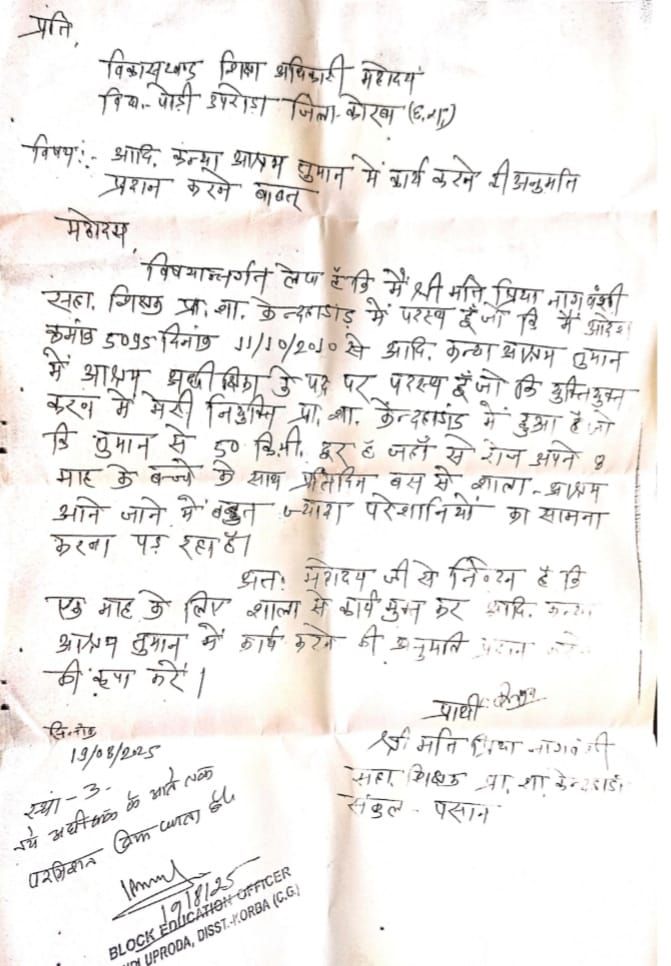 प्रति,
विकासखण्ड शिक्षा अधिकारी महोदय
विख.- पोड़ी उपरोड़ा जिला-कोरबा (छ.ग.)
विषय:- आदि. कन्या आश्रम तुमान में कार्य करने की अनुमति
प्रदान करने बाबत्
महोदय,
विषयान्तर्गत लेख है कि मैं श्री मति प्रिया नागवंशी
सहा. शिक्षक प्रा. शा. केन्दहाडांड़ में पदस्थ हूँ जो कि मैं आदेश
क्रमांक 5095 दिनांक 11/10/2010 से आदि. कन्या आश्रम तुमान
में आश्रम अधीक्षिका के पद पर पदस्थ हूँ जो कि युक्तियुक्त
करण में मेरी नियुक्ति प्रा. शा. केन्दहाडांड में हुआ है जो
कि तुमान से 50 कि.मी. दूर है जहाँ से रोज अपने 8
माह के बच्चे के साथ प्रतिदिन बस से शाला-आश्रम
आने जाने में बहुत ज्यादा परेशानियों का सामना
करना पड़ रहा है।
अतः महोदय जी से निवेदन है कि
एक माह के लिए शाला से कार्य मुक्त कर आदि. कन्या
आश्रम तुमान में कार्य करने की अनुमति प्रदान करने
की कृपा करें।
प्रार्थी
श्री मति प्रिया नागवंशी
सहा. शिक्षक प्रा. शा. केन्दहाडां
संकुल - पसान
दिनांक
19/08/2025
स्था - 3 -
नये अधीक्षक के आते तक
किया जाता है।
19/8/25
BLOCK EDUCATION OFFICER
DI UPRODA, DISST.-KORBA (C.G.)